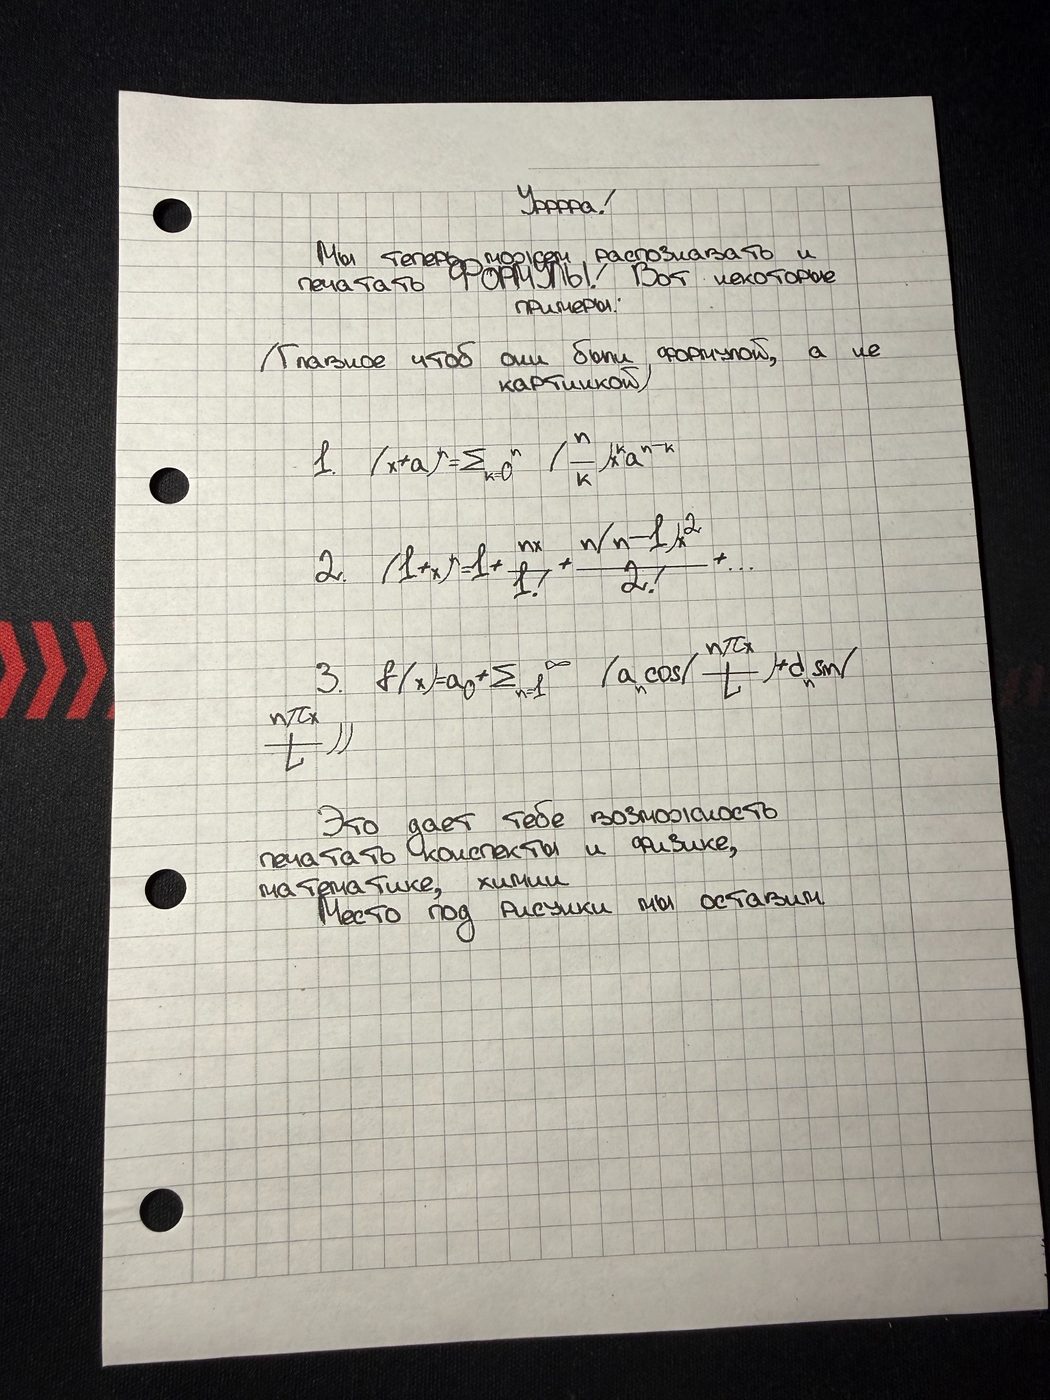 Уррррра!
Мы теперь можем распознавать и
печатать ФОРМУЛЫ! Вот некоторые
примеры:
(Главное чтоб они были формулой, а не
картинкой)
1. (x+a)ⁿ=∑ₖ₌₀ⁿ (n/k)xᵏaⁿ⁻ᵏ
2. (1+x)ⁿ=1+nx/1!+n(n-1)x²/2!+...
3. f(x)=a₀+∑ₙ₌₁^∞ (aₙcos(nπx/L)+dₙsin(
nπx/L))
Это дает тебе возможность
печатать конспекты и физике,
математике, химии
Место под рисунки мы оставим